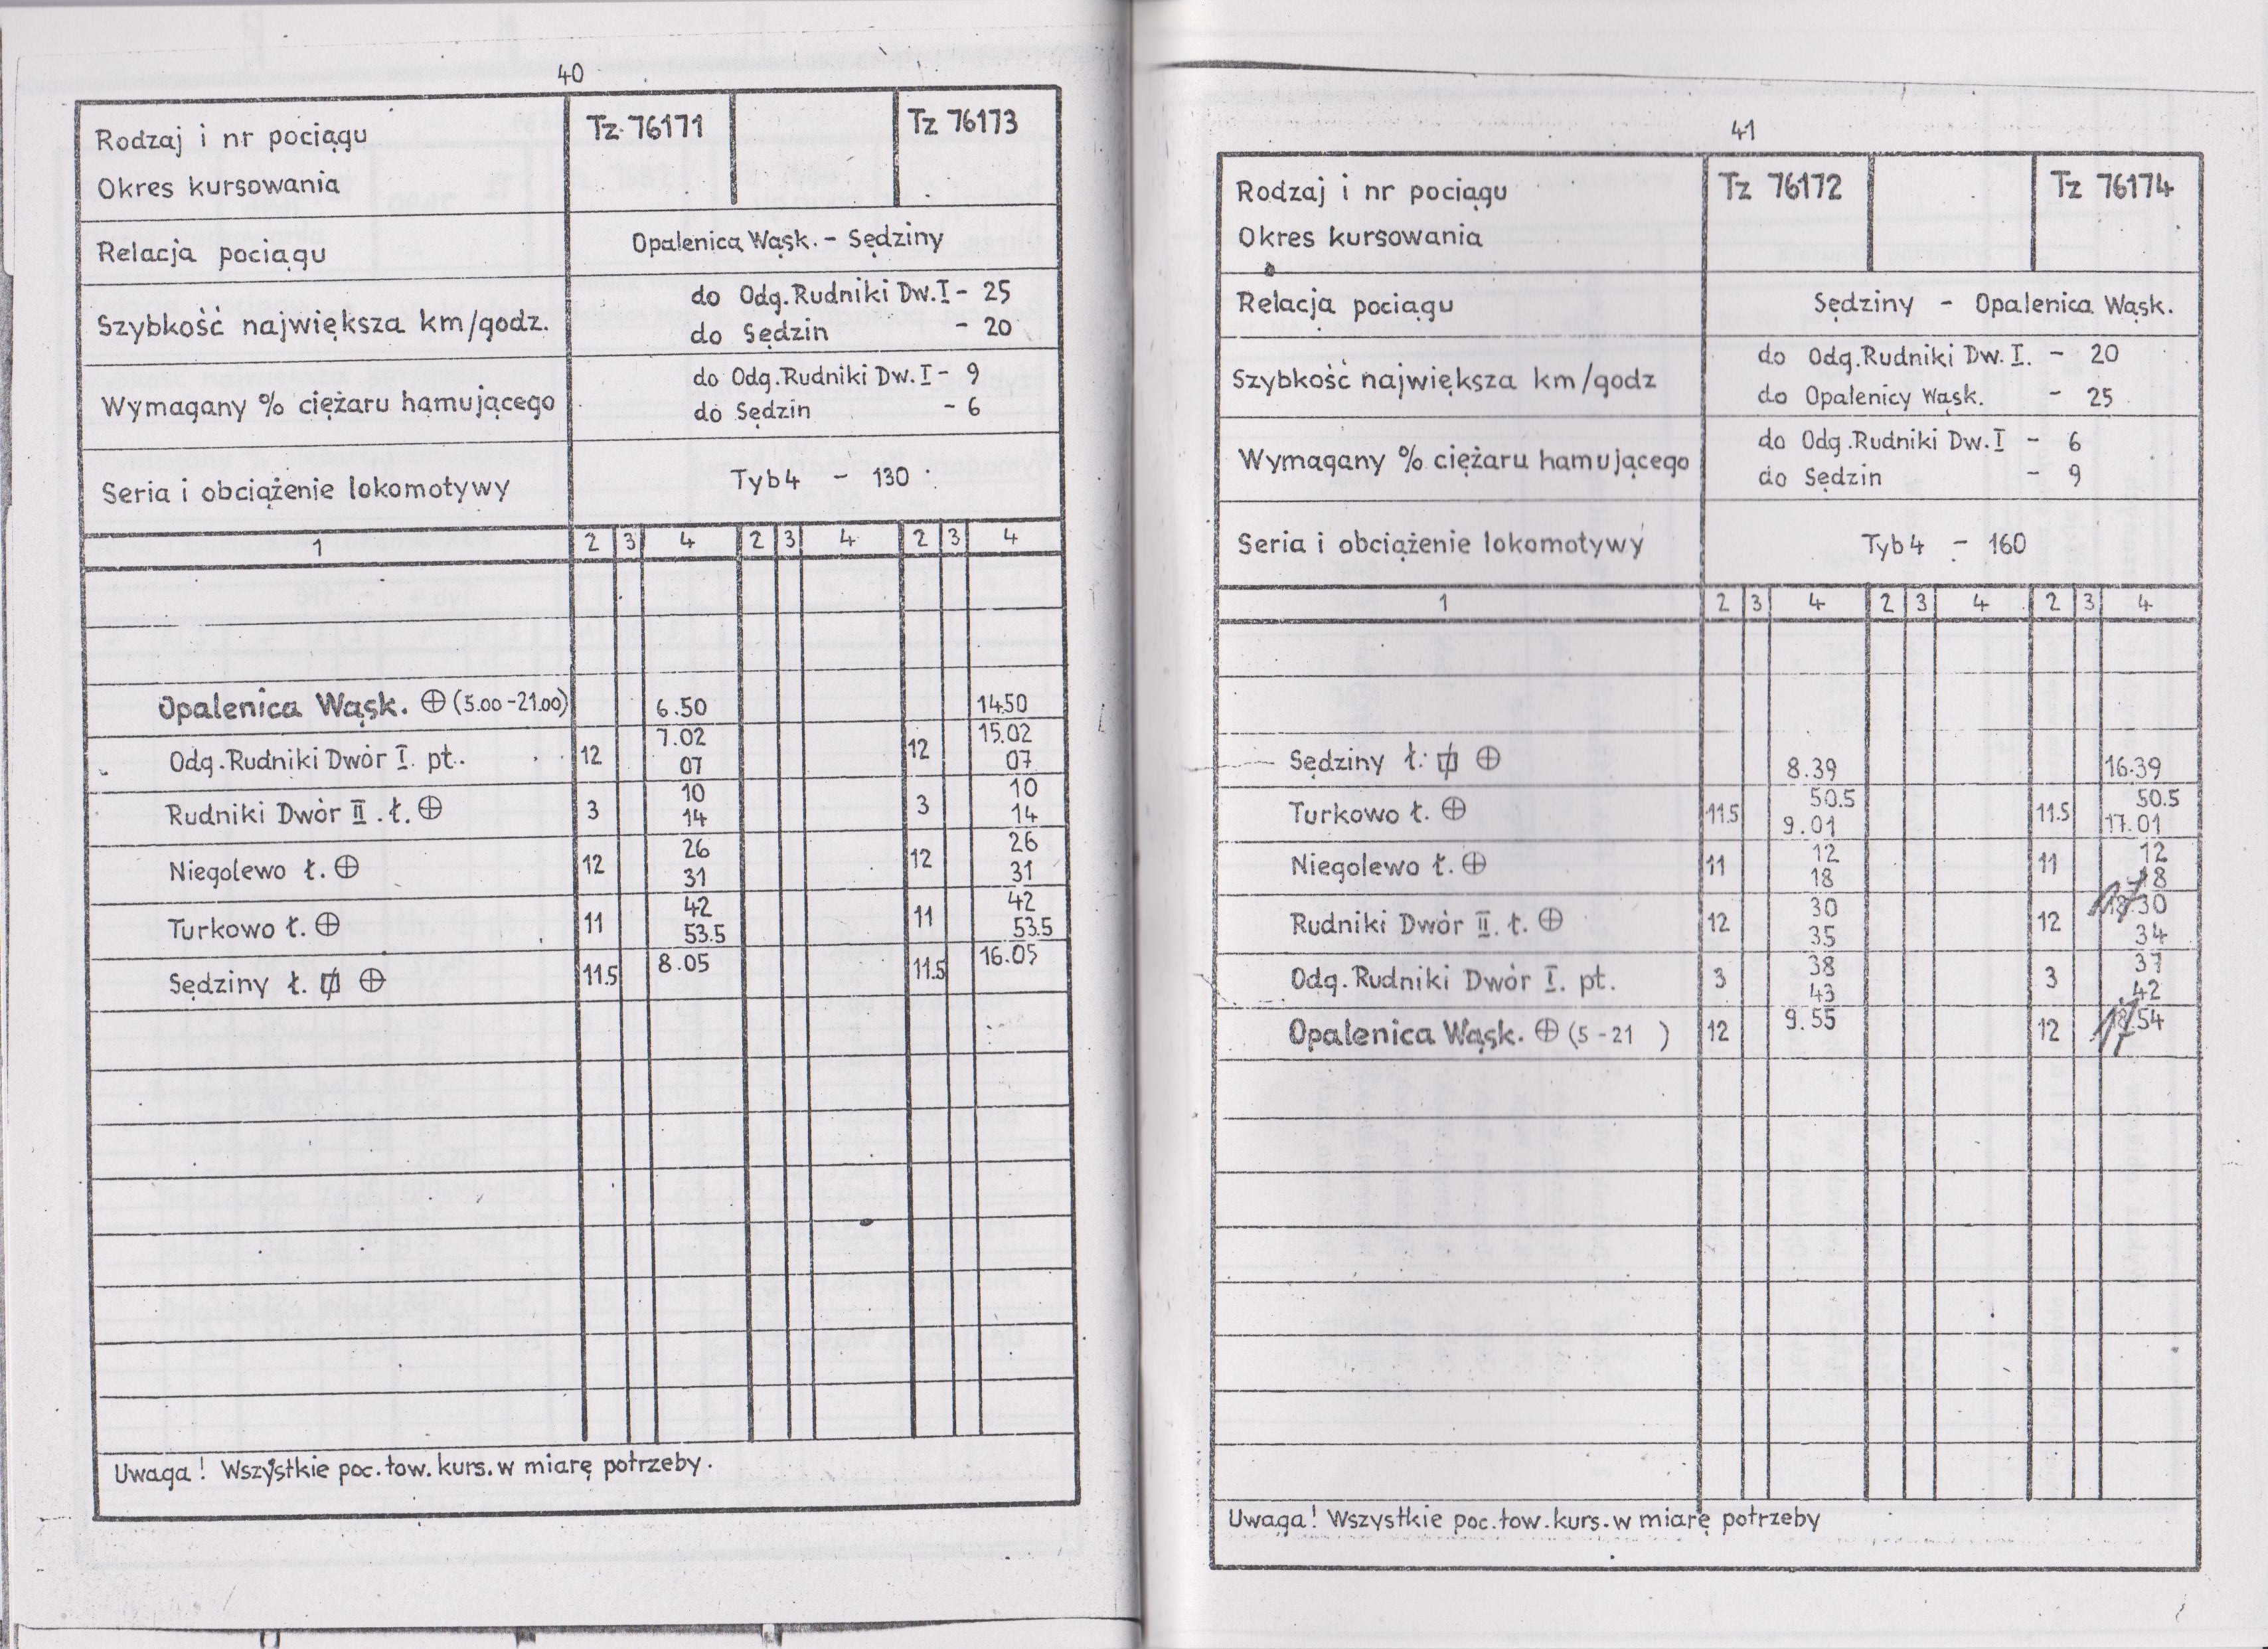 40
Rodzaj i nr pociągu
Okres kursowania
Tz 76171
Tz 76173
Relacja pociągu
Opalenica Wąsk. - Sędziny
Szybkość największa km/godz.
do Odg. Rudniki Dw. I - 25
do Sędzin - 20
Wymagany % ciężaru hamującego
do Odg. Rudniki Dw. I - 9
do Sędzin - 6
Seria i obciążenie lokomotywy
Tyb4 - 130
1 2 3 4 2 3 4 2 3 4
Opalenica Wąsk. ⊕ (5.00 - 21.00) 6.50 14.50
Odg. Rudniki Dwór I. pt. 12 7.02 07 12 15.02 07
Rudniki Dwór II. ł. ⊕ 3 10 14 3 10 14
Niegolewo ł. ⊕ 12 26 31 12 26 31
Turkowo ł. ⊕ 11 42 53.5 11 42 53.5
Sędziny ł. ⊕ 11.5 8.05 11.5 16.05
Uwaga! Wszystkie poc. tow. kurs. w miarę potrzeby.
41
Rodzaj i nr pociągu
Okres kursowania
Tz 76172
Tz 76174
Relacja pociągu
Sędziny - Opalenica Wąsk.
Szybkość największa km/godz
do Odg. Rudniki Dw. I. - 20
do Opalenicy Wąsk. - 25
Wymagany % ciężaru hamującego
do Odg. Rudniki Dw. I - 6
do Sędzin - 9
Seria i obciążenie lokomotywy
Tyb4 - 160
1 2 3 4 2 3 4 2 3 4
Sędziny ł. ⊕ 8.39 16.39
Turkowo ł. ⊕ 11.5 50.5 9.01 11.5 50.5 17.01
Niegolewo ł. ⊕ 11 12 18 11 12 18
Rudniki Dwór II. ł. ⊕ 12 30 35 12 17 30 34
Odg. Rudniki Dwór I. pt. 3 38 43 3 37 42
Opalenica Wąsk. ⊕ (5 - 21 ) 12 9.55 12 17 54
Uwaga! Wszystkie poc. tow. kurs. w miarę potrzeby